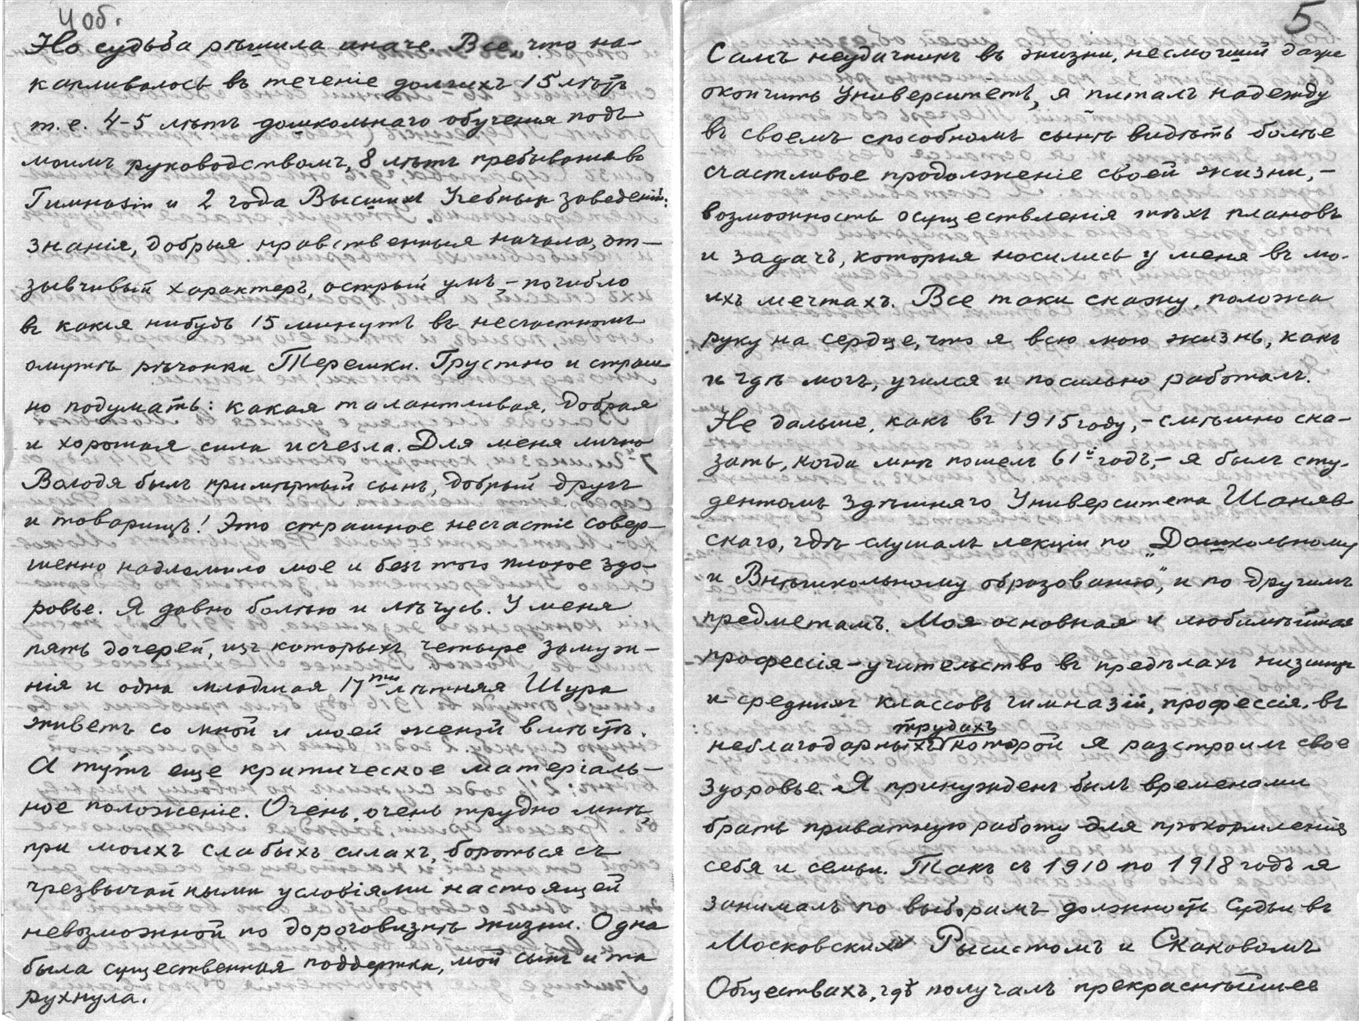 4 об.
Но судьба рѣшила иначе. Все, что на-
капливалось въ теченіе долгихъ 15 лѣтъ
т. е. 4-5 лѣтъ домкольнаго обученія подъ
моимъ руководствомъ, 8 лѣтъ пребыванія въ
Гимназіи и 2 года Высших Учебных заведеній:
знанія, добрыя нравственныя начала, от-
зывчивый характеръ, острый умъ, - погибло
въ какія нибудь 15 минутъ въ несчастномъ
омутѣ рѣчонки Терешки. Грустно и страш-
но подумать: какая талантливая, добрая
и хорошая сила исчезла. Для меня лично
Володя былъ примѣрный сынъ, добрый другъ
и товарищъ! Это страшное несчастіе совер-
шенно надломило мое и безъ того плохое здо-
ровье. Я давно болѣю и лѣчусь. У меня
пять дочерей, изъ которыхъ четыре замуж-
нія и одна младшая 17ти лѣтняя Шура
живетъ со мной и моей женой вмѣстѣ.
А тутъ еще критическое матеріаль-
ное положеніе. Очень, очень трудно мнѣ,
при моихъ слабыхъ силахъ, бороться съ
чрезвычайными условіями настоящей
невозможной по дороговизнѣ жизни. Одна
была существенная поддержка, мой сынъ и та
рухнула.
5
Самъ неудачникъ въ жизни, несмогшій даже
окончить Университетъ, я питалъ надежду
въ своемъ способномъ сынѣ видѣть болѣе
счастливое продолженіе своей жизни, -
возможность осуществленія тѣхъ плановъ
и задачъ, которыя носились у меня въ мо-
ихъ мечтахъ. Все таки скажу, положа
руку на сердце, что я всю мою жизнь, какъ
и гдѣ могъ, учился и посильно работалъ.
Не дальше, какъ въ 1915 году, - смѣшно ска-
зать, когда мнѣ пошелъ 61й годъ, - я былъ сту-
дентомъ здѣшняго Университета Шаняв-
скаго, гдѣ слушалъ лекціи по „Дошкольному
и Внѣшкольному образованію", и по другимъ
предметамъ. Моя основная и любимѣйшая
профессія - учительство въ предѣлах низшихъ
и средних классовъ гимназій, профессія, въ
неблагодарныхъ трудахъ которой я разстроилъ свое
здоровье. Я принужденъ былъ временами
брать приватную работу для прокормленія
себя и семьи. Такъ съ 1910 по 1918 годъ я
занималъ по выборамъ должность Судьи въ
Московских Рысистомъ и Скаковомъ
Обществахъ, гдѣ получалъ прекраснѣйшее